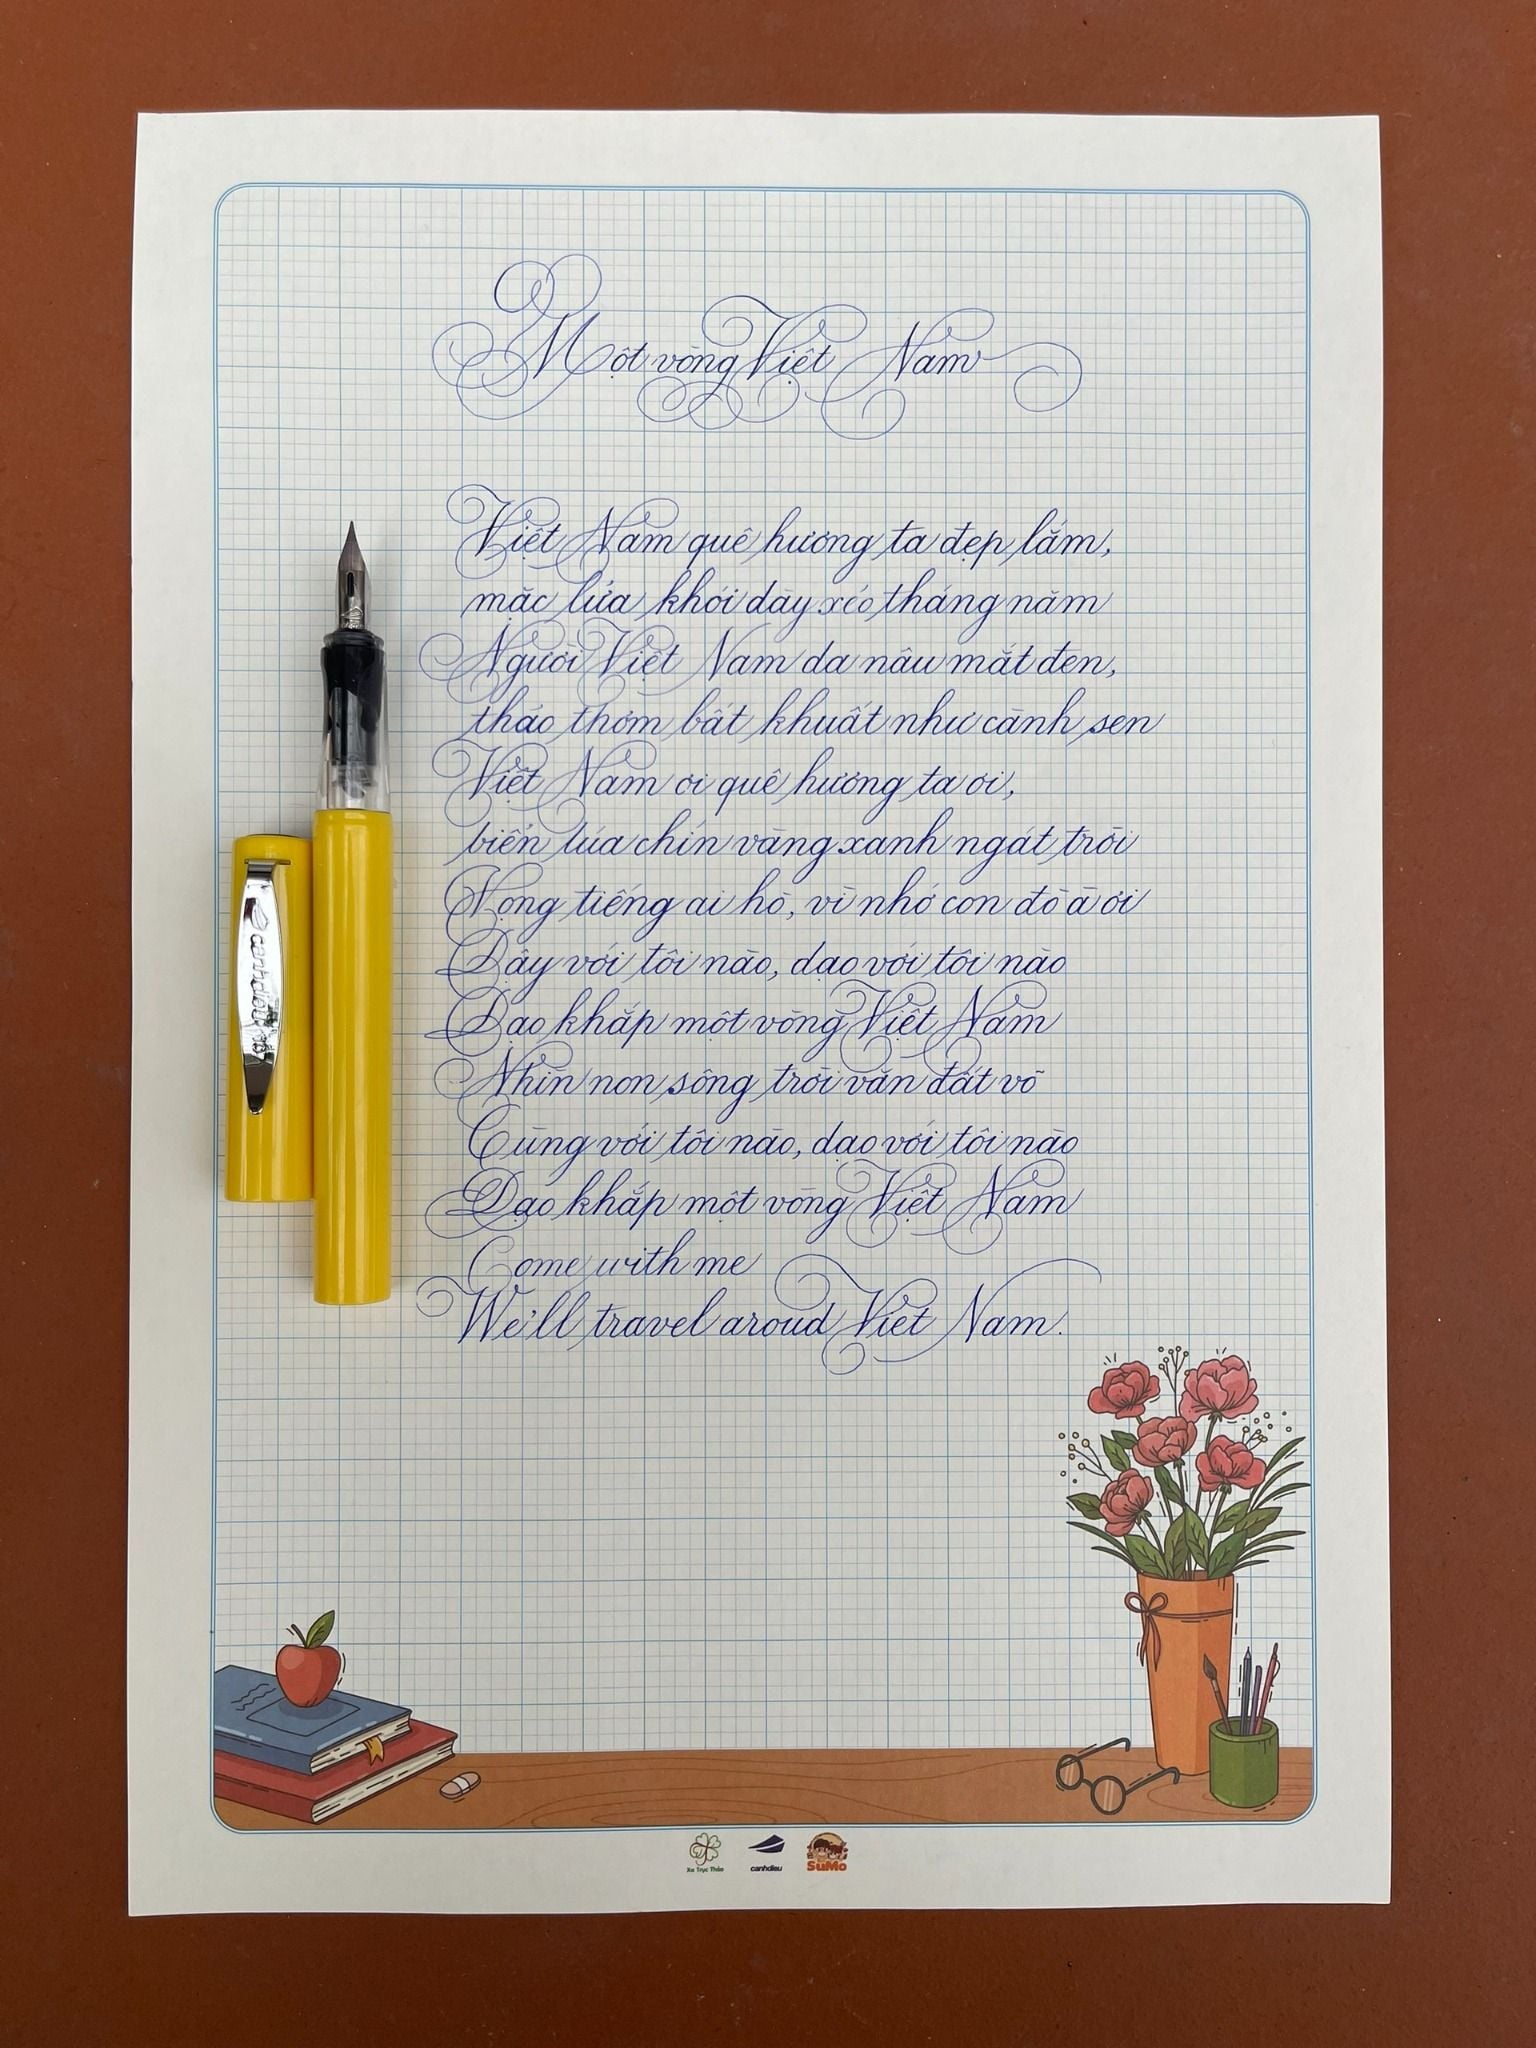 Một vòng Việt Nam
Việt Nam quê hương ta đẹp lắm,
mặc lửa khói dày xéo tháng năm
Người Việt Nam da nâu mắt đen,
thảo thơm bất khuất như cành sen
Việt Nam ơi quê hương ta ơi,
biển lúa chín vàng xanh ngát trời
Vọng tiếng ai hò, vì nhớ con đò à ơi
Dậy với tôi nào, dạo với tôi nào
Dạo khắp một vòng Việt Nam
Nhìn non sông trời văn đất võ
Cùng với tôi nào, dạo với tôi nào
Dạo khắp một vòng Việt Nam
Come with me
We'll travel aroud Việt Nam.
Xa Trục Thảo
canhdieu
SuMo